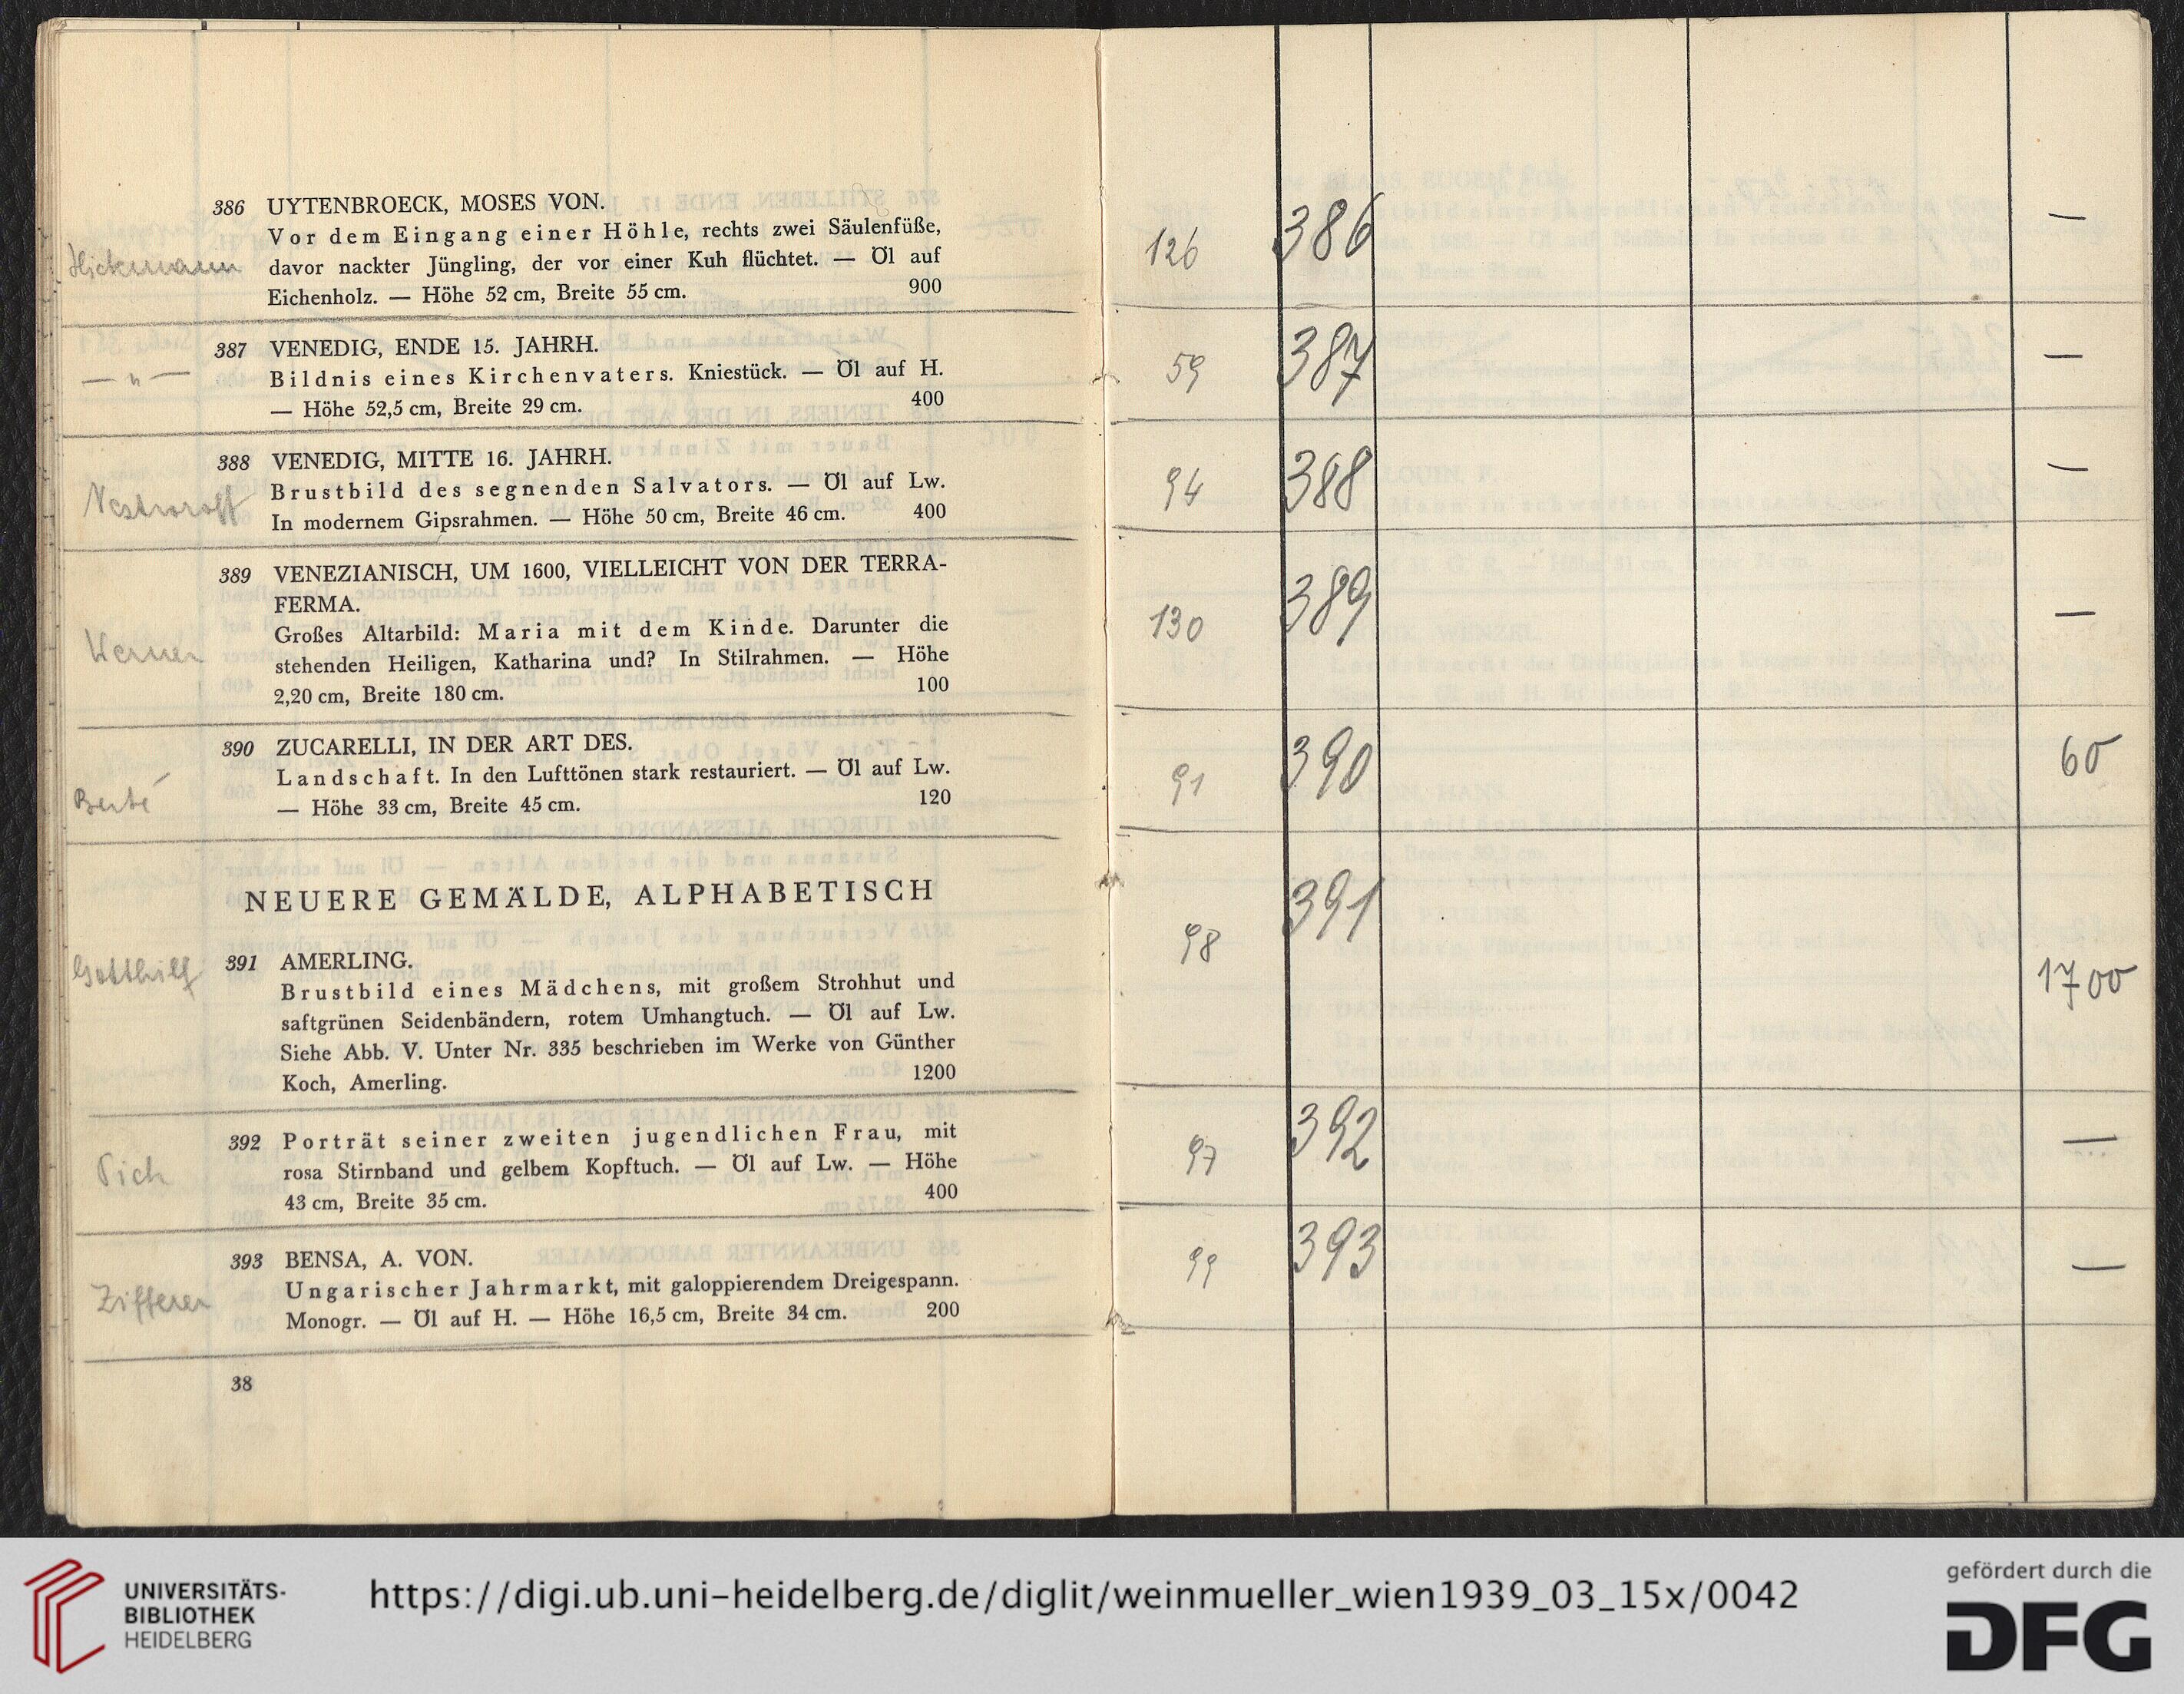 386 UYTENBROECK, MOSES VON.
Vor dem Eingang einer Höhle, rechts zwei Säulenfüße,
Hickmann davor nackter Jüngling, der vor einer Kuh flüchtet. — Öl auf
Eichenholz. — Höhe 52 cm, Breite 55 cm. 900
387 VENEDIG, ENDE 15. JAHRH.
— " — Bildnis eines Kirchenvaters. Kniestück. — Öl auf H.
— Höhe 52,5 cm, Breite 29 cm. 400
388 VENEDIG, MITTE 16. JAHRH.
Brustbild des segnenden Salvators. — Öl auf Lw.
In modernem Gipsrahmen. — Höhe 50 cm, Breite 46 cm. 400
389 VENEZIANISCH, UM 1600, VIELLEICHT VON DER TERRA-
FERMA.
Großes Altarbild: Maria mit dem Kinde. Darunter die
Werner stehenden Heiligen, Katharina und? In Stilrahmen. — Höhe
2,20 cm, Breite 180 cm. 100
390 ZUCARELLI, IN DER ART DES.
Landschaft. In den Lufttönen stark restauriert. — Öl auf Lw.
Berté — Höhe 33 cm, Breite 45 cm. 120
NEUERE GEMÄLDE, ALPHABETISCH
Gotthilf 391 AMERLING.
Brustbild eines Mädchens, mit großem Strohhut und
saftgrünen Seidenbändern, rotem Umhangtuch. — Öl auf Lw.
Siehe Abb. V. Unter Nr. 335 beschrieben im Werke von Günther
Koch, Amerling. 1200
392 Porträt seiner zweiten jugendlichen Frau, mit
Pich rosa Stirnband und gelbem Kopftuch. — Öl auf Lw. — Höhe
43 cm, Breite 35 cm. 400
393 BENSA, A. VON.
Zifferer Ungarischer Jahrmarkt, mit galoppierendem Dreigespann.
Monogr. — Öl auf H. — Höhe 16,5 cm, Breite 34 cm. 200
38
126 386 —
59 387 —
94 388 —
130 389 —
91 390 60
98 391 1700
97 392 —
99 393 —
UNIVERSITÄTS-
BIBLIOTHEK
HEIDELBERG
https://digi.ub.uni-heidelberg.de/diglit/weinmueller_wien1939_03_15x/0042
gefördert durch die
DFG